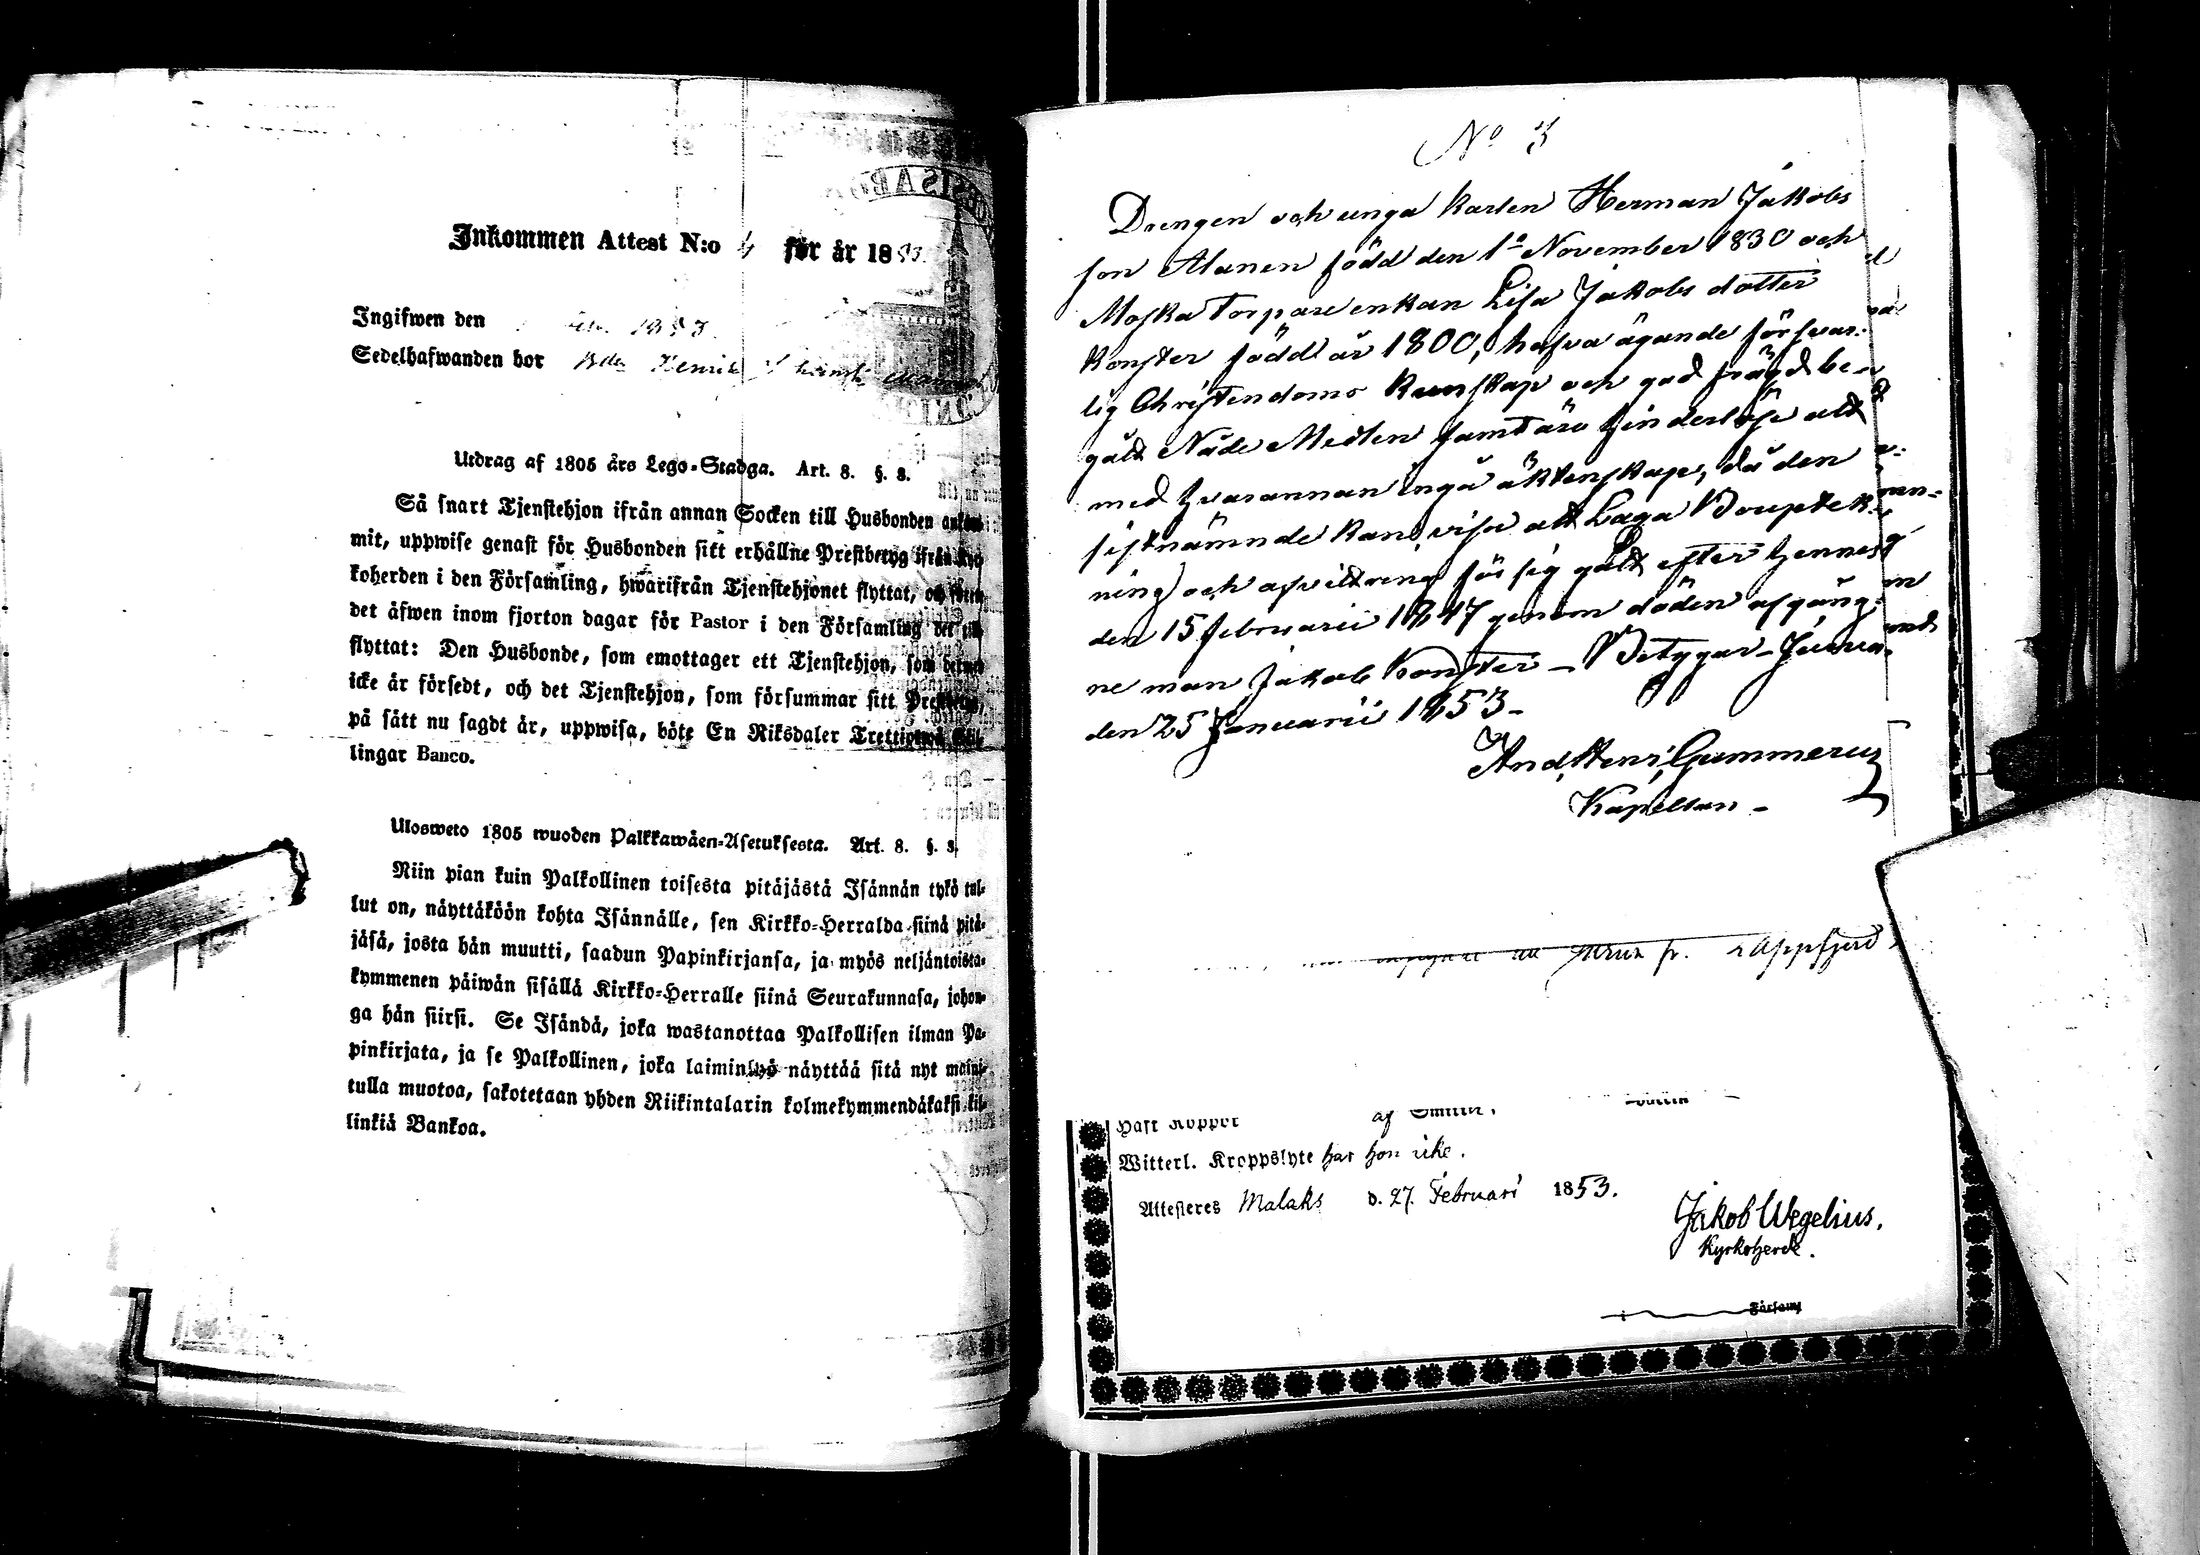 Inkommen Attest N:o 4 för år 1853.
Ingifwen den 1853.
Sedelhafwanden bor Henrik
Utdrag af 1805 års Lego-Stadga. Art. 8. §. 3.
Så snart Tjenstehjon ifrån annan Socken till Husbonden ankom-
mit, uppwise genast för Husbonden sitt erhållne Prestbetyg ifrån Kyr-
koherden i den Församling, hwarifrån Tjenstehjonet flyttat, och
det äfwen inom fjorton dagar för Pastor i den Församling det till
flyttat: Den Husbonde, som emottager ett Tjenstehjon, som dermed
icke är försedt, och det Tjenstehjon, som försummar sitt Prestbetyg,
på sätt nu sagdt är, uppwisa, böte En Riksdaler Trettiotwå Skil-
lingar Banco.
Ulosweto 1805 wuoden Palkkawäen-Asetuksesta. Art. 8. §. 3.
Niin pian kuin Palkollinen toisesta pitäjästä Isännän tykö tul-
lut on, näyttäköön kohta Isännälle, sen Kirkko-Herralda siinä pitä-
jäsä, josta hän muutti, saadun Papinkirjansa, ja myös neljäntoista-
kymmenen päiwän sisällä Kirkko-Herralle siinä Seurakunnasa, johon-
ga hän siirsi. Se Isändä, joka wastanottaa Palkollisen ilman Pa-
pinkirjata, ja se Palkollinen, joka laiminlyö näyttää sitä nyt maini-
tulla muotoa, sakotetaan yhden Riikintalarin kolmekymmendäkaksi kil-
linkiä Bankoa.
No 3
Drengen och unga karlen Herman Jakobs
son Alanen född den 1a November 1830 och
Moska Torpare enkan Lisa Jakobs dotter
Konster född år 1800, hafva ägande försvar-
lig Christendoms kunskap och god frägd be-
gått Nåde Medlen samt äro hinderlöse att
med hvarannan ingå äktenskap, då den
sistnämnde kan visa att Laga Boupptek-
ning och afvittring för sig gått efter hennes
den 15 Februarii 1847 genom döden afgång-
ne man Jakob Konster – Betygar – Jurva
den 25 Januarii 1853 –
And. Henr. Gummerus
Kapellan –
fr. Lappfjerd
Haft Koppor
Witterl. Kroppslyte har hon icke.
Attesteres Malaks d. 27. Februari 1853.
Jakob Wegelius.
Kyrkoherde.